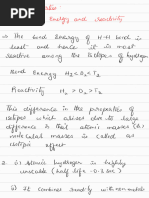 Energy and reactivity
=> The Bond Energy of H-H bond is
least and hence it is most
reactive among the isotopes of hydrogen
Bond Energy H₂ < D₂ < T₂
Reactivity H₂ > D₂ > T₂
This difference in the properties of
isotopes which arises due to large
difference is their atomic masses (or)
molecular masses is called as
isotopic effect
2. (i) Atomic hydrogen is highly
unstable (half life: 0.3 sec)
(ii) It combines readily with non metals